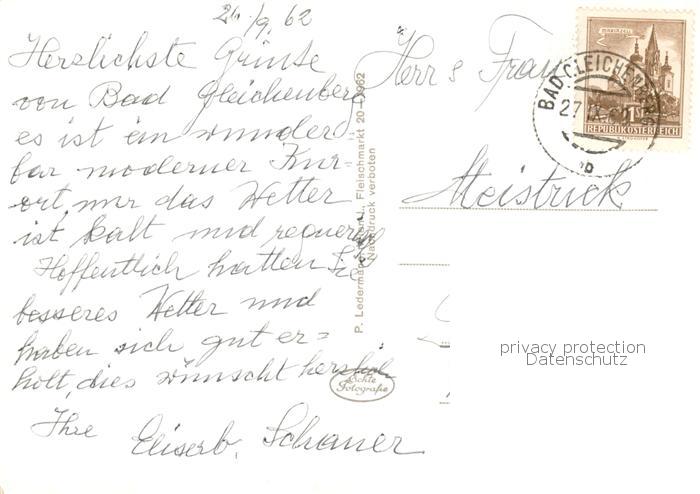 26/9. 62
Herzlichste Grüsse
von Bad Gleichenberg
es ist ein wunder
bar moderner Kur=
ort, nur das Wetter
ist kalt und regnerisch
Hoffentlich hatten Sie
besseres Wetter und
haben sich gut er=
holt, dies wünscht herzlich
Ihre
Schauer
P. Ledermann, Wien I., Fleischmarkt 20
Nachdruck verboten
Echte
Fotografie
Herr & Frau
Meistrick
BAD GLEICHENBERG
27.IX.62
1S
REPUBLIK ÖSTERREICH
privacy protection
Datenschutz